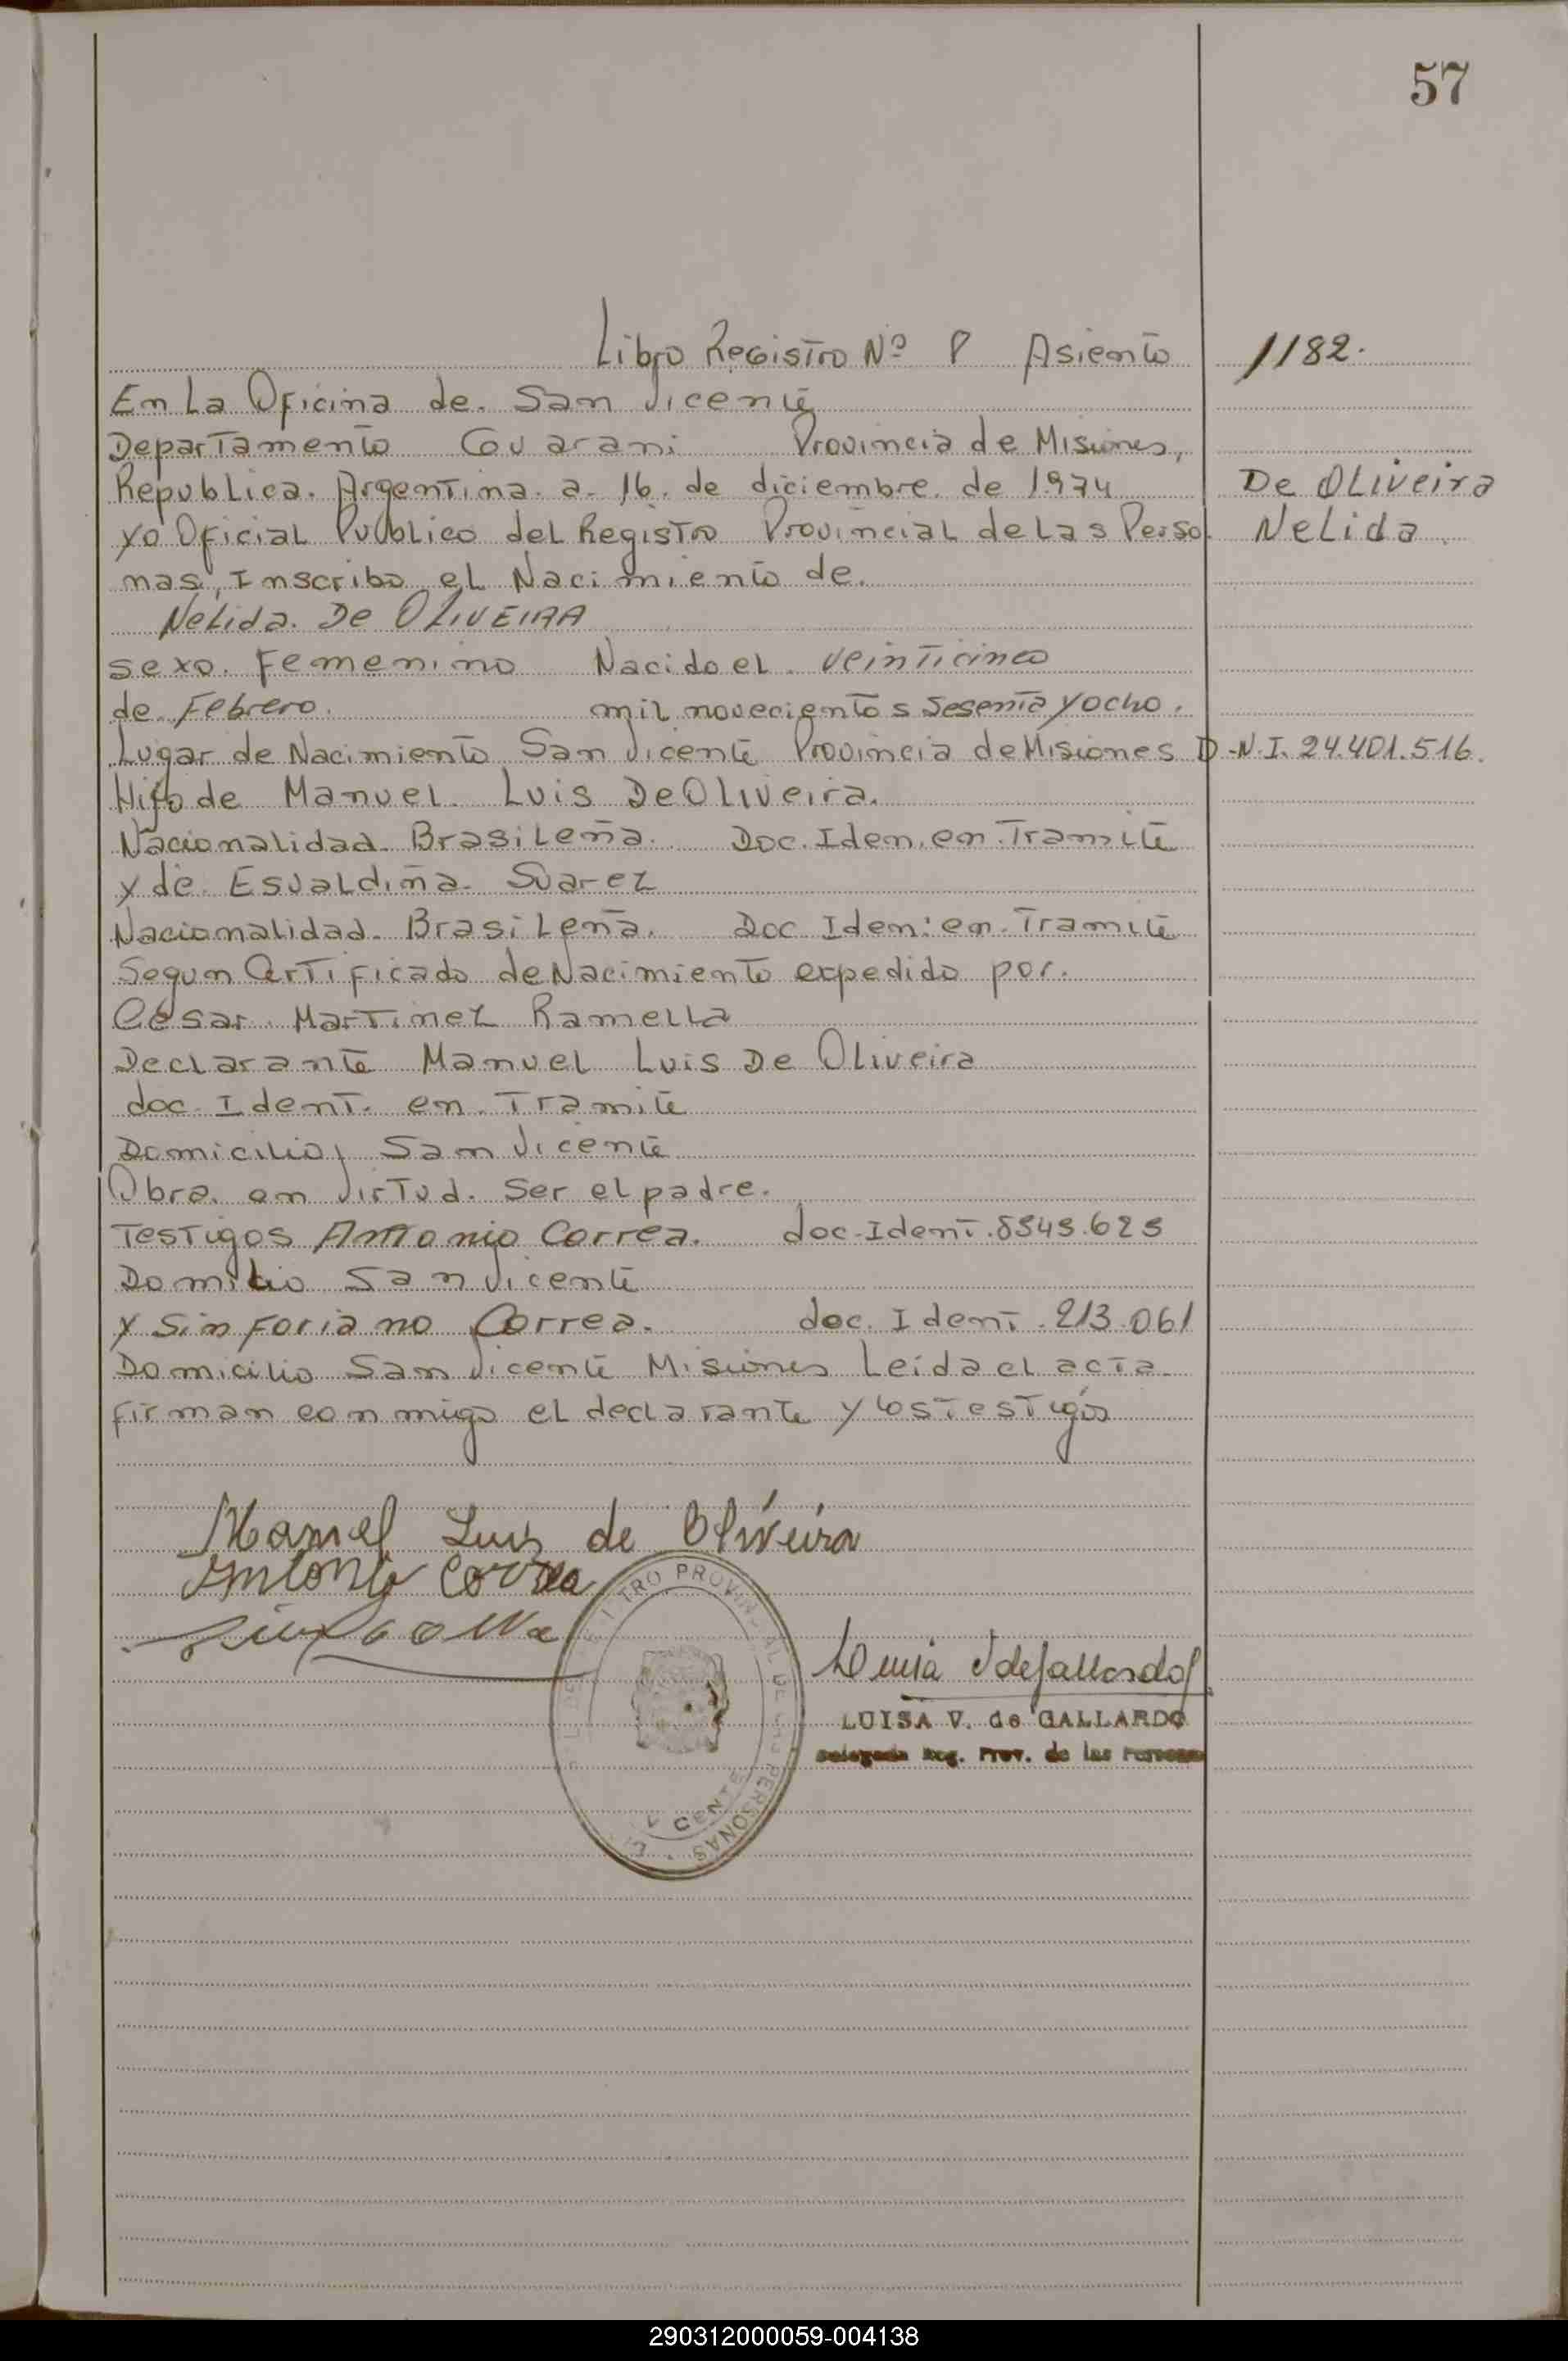 57
Libro Registro Nº 8 Asiento 1182.
En La Oficina de San Vicente
Departamento Guarani Provincia de Misiones,
Republica Argentina a 16 de diciembre de 1974
De Oliveira
yo Oficial Publico del Registro Provincial de Las Perso
Nelida
nas, Inscribo el Nacimiento de.
Nelida De OLIVEIRA
sexo. Femenino Nacido el. veinticinco
de Febrero. mil novecientos sesenta y ocho.
Lugar de Nacimiento San Vicente Provincia de Misiones
D.N.I. 24.401.516.
Hijo de Manuel Luis De Oliveira.
Nacionalidad Brasileña. Doc. Iden. en Tramite
y de Esualdiña Suarez
Nacionalidad Brasileña. Doc Iden: en Tramite
Segun Certificado de Nacimiento expedido por.
Cesar Martinez Ramella
Declarante Manuel Luis De Oliveira
doc. Ident. en Tramite
Domicilio, San Vicente
Obra en Virtud. Ser el padre.
Testigos Antonio Correa. doc. Ident.
Domilio San Vicente
y Sinforiano Correa. doc. Ident. 213.061
Domicilio San Vicente Misiones Leida el acta
firman conmigo el declarante y los Testigos
Manuel Luis de Oliveira
Antonio Correa
Luisa V de Gallardo
LUISA V. de GALLARDO
Delegada Reg. Prov. de las Personas
290312000059-004138